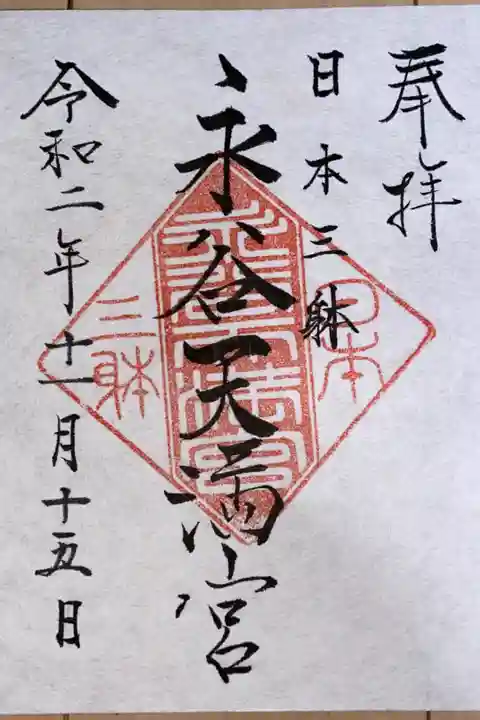 奉拝
日本三躰
永谷天満宮
令和二年十一月十五日
日本
永谷天満宮
三躰